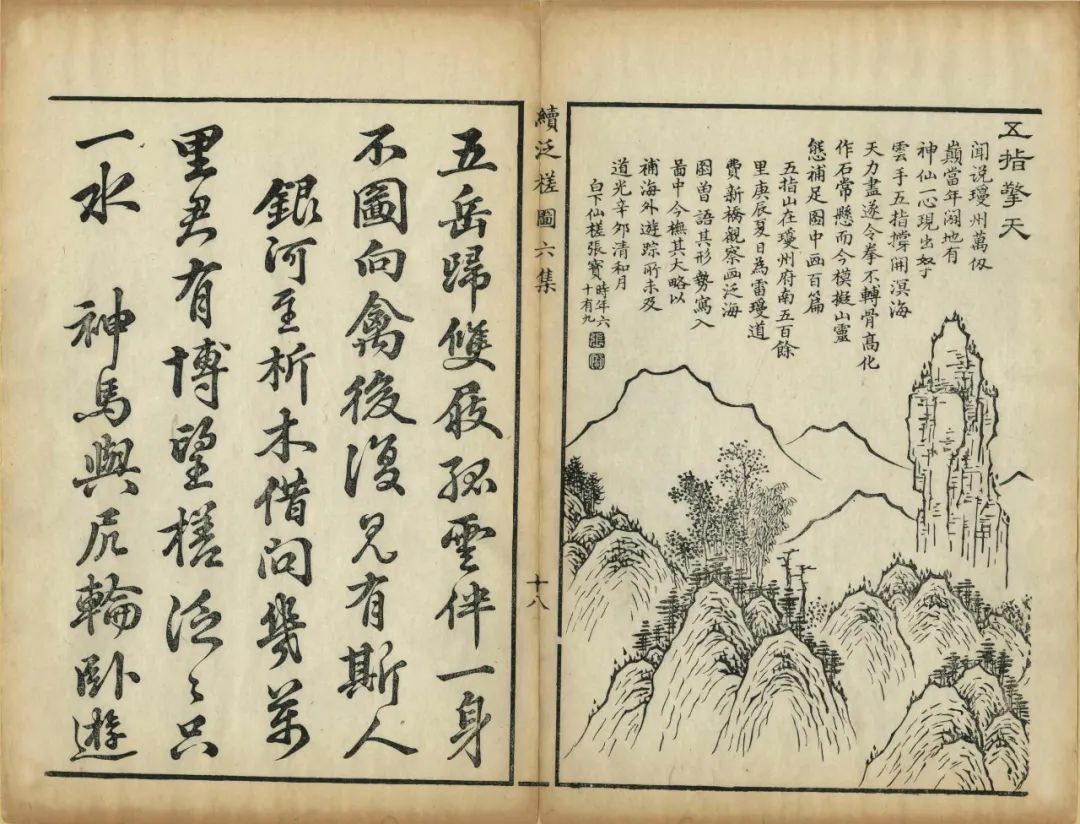 五指擎天
聞说瓊州萬仭
巔當年濶地有
神仙一心現出如
雲手五指撐開溟海
天力盡遂令拳不轉骨高化
作石常懸而今模擬山靈
態補足图中画百篇
五指山在瓊州府南五百餘
里庚辰夏日為雷瓊道
費新橋觀察画泛海
圖曾語其形勢寫入
啚中今橅其大略以
補海外遊踪所未及
道光辛夘清和月
白下仙槎張寶時年六
十有九
續泛槎圖六集
十八
五岳歸雙屐孤雲伴一身
不圖向禽後復見有斯人
銀河至析木借问幾萬
里君有博望槎泛〻只
一水　神馬與尻輪卧遊